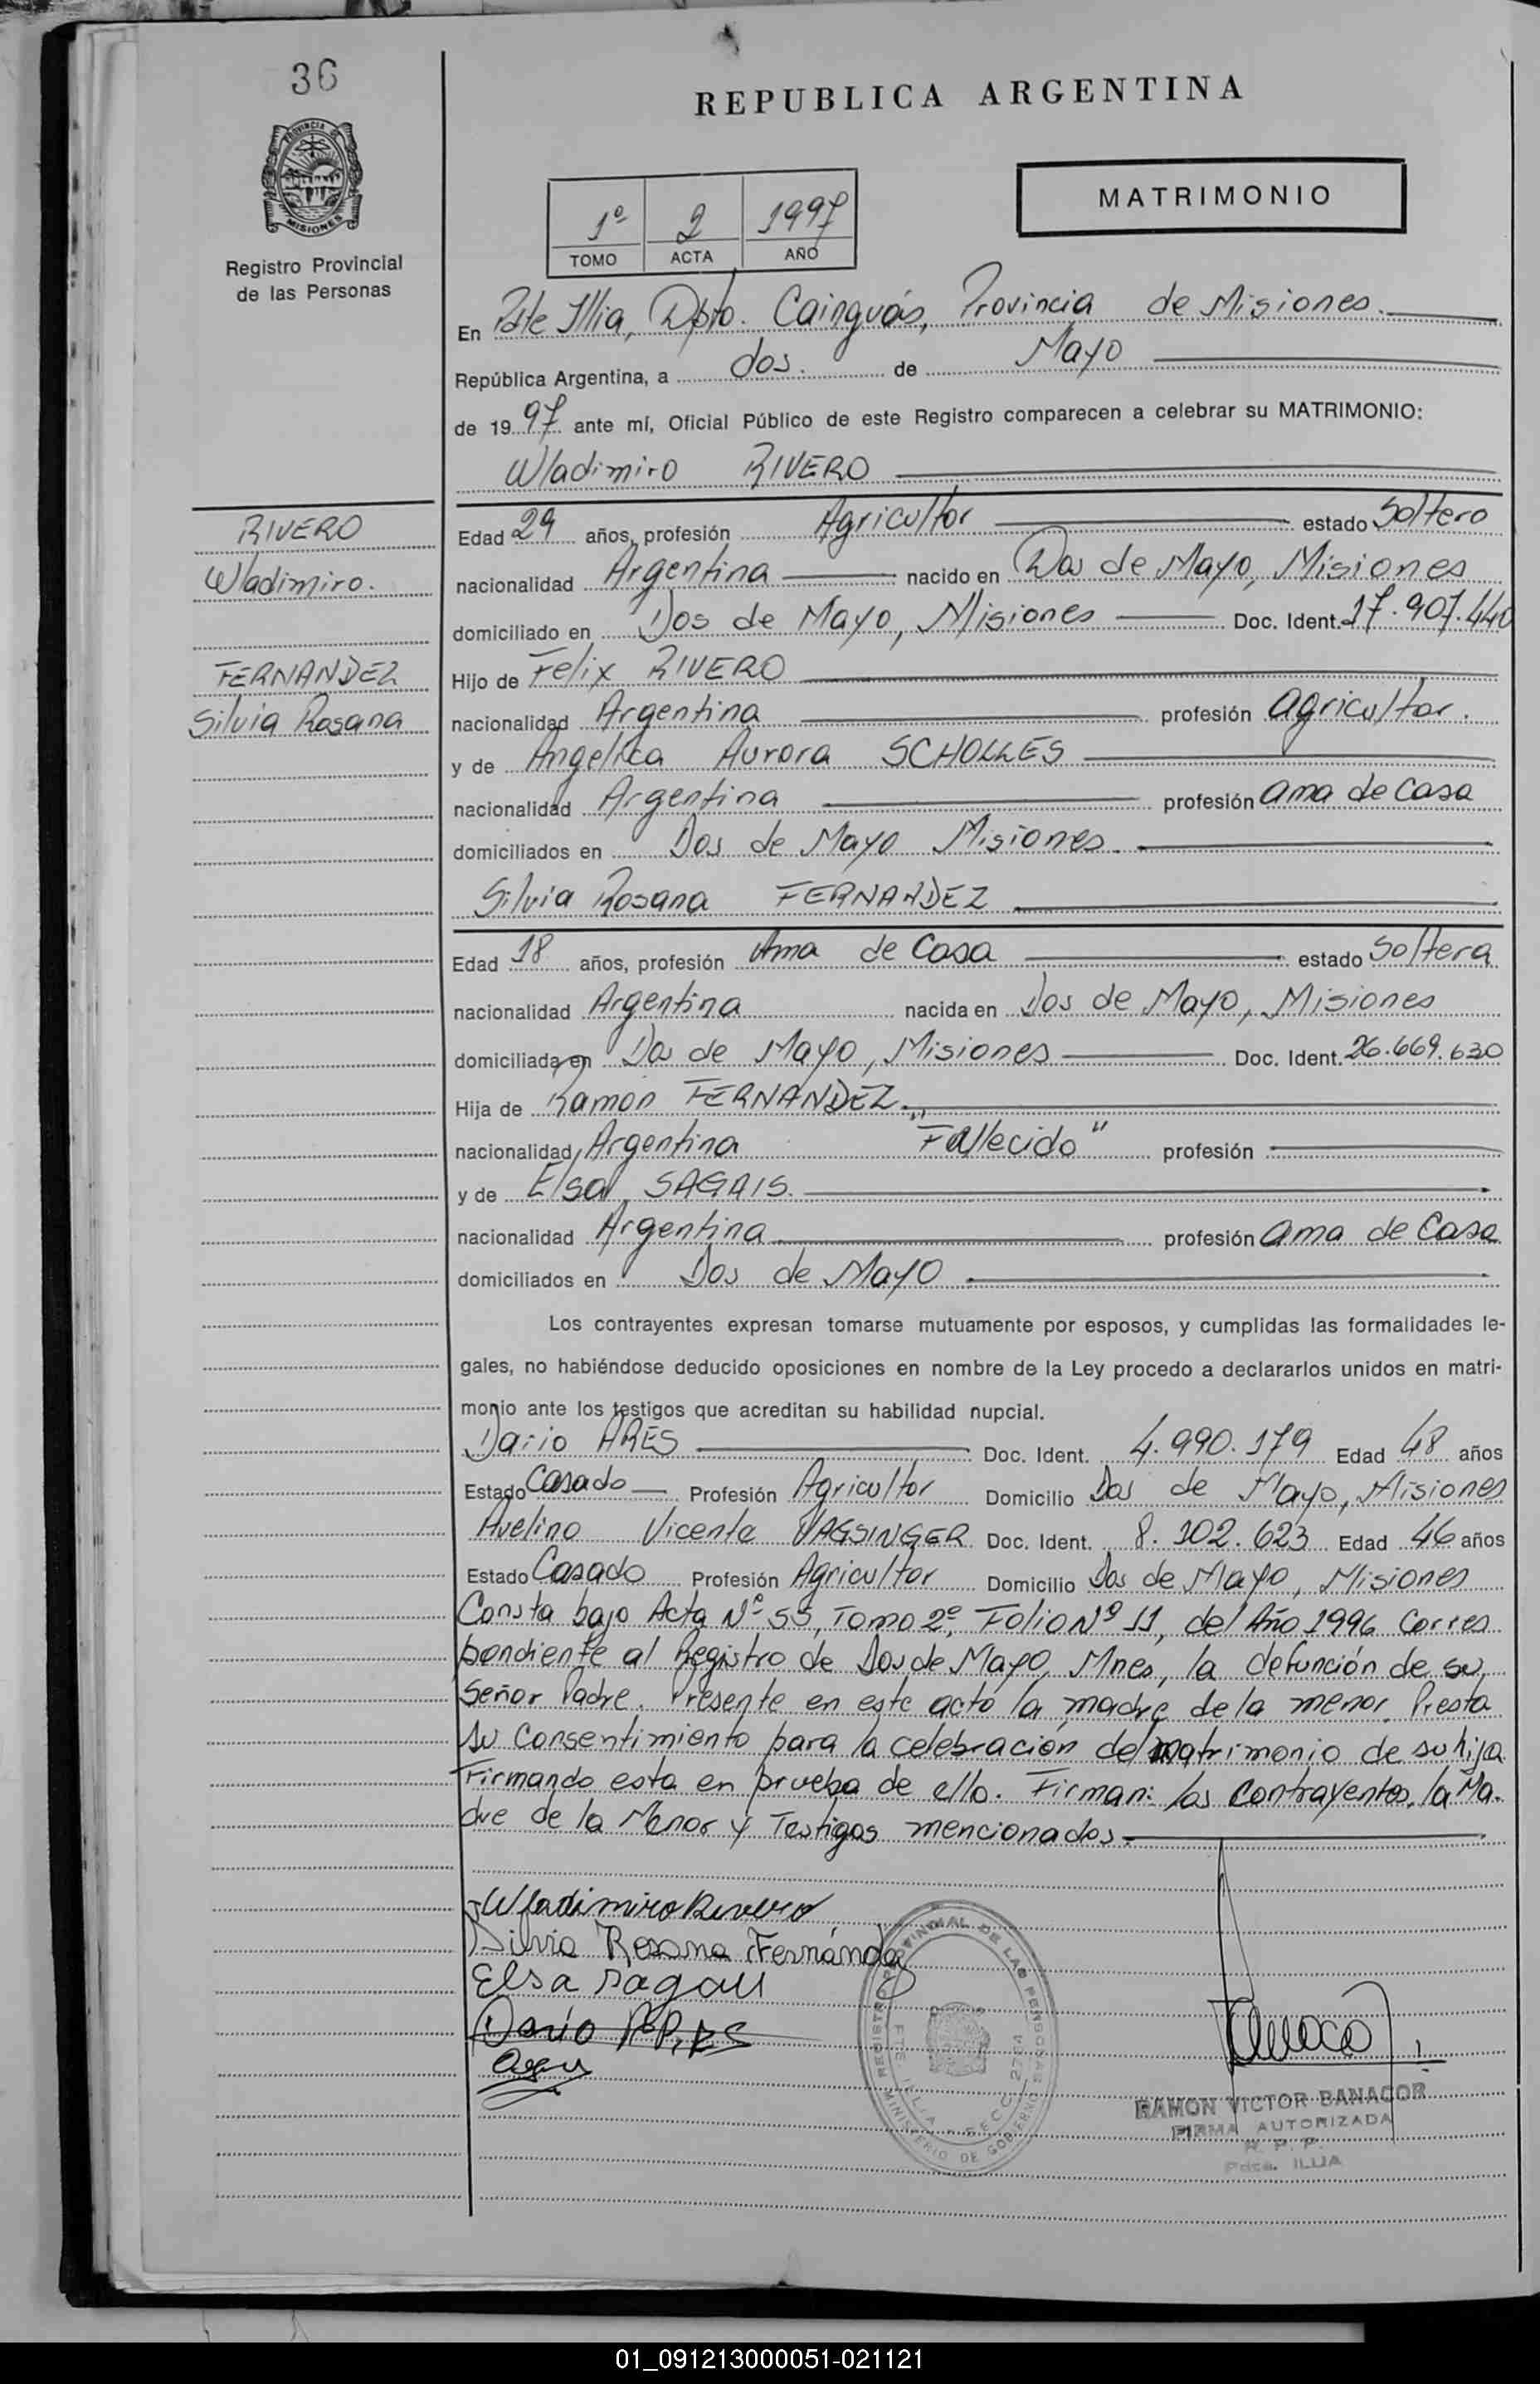 36
REPUBLICA ARGENTINA
PROVINCIA DE
MISIONES
MATRIMONIO
1º 2 1997
TOMO ACTA AÑO
Registro Provincial
de las Personas
En Pdte Illia, Dpto. Cainguás, Provincia de Misiones.
República Argentina, a dos. de Mayo
de 1997 ante mí, Oficial Público de este Registro comparecen a celebrar su MATRIMONIO:
Wladimiro RIVERO
RIVERO
Wladimiro.
FERNANDEZ
Silvia Rosana
Edad 29 años, profesión Agricultor estado Soltero
nacionalidad Argentina nacido en Dos de Mayo, Misiones
domiciliado en Dos de Mayo, Misiones Doc. Ident. 17.907.440
Hijo de Felix RIVERO
nacionalidad Argentina profesión agricultor.
y de Angelica Aurora SCHOLLES
nacionalidad Argentina profesión ama de Casa
domiciliados en Dos de Mayo Misiones.
Silvia Rosana FERNANDEZ
Edad 18 años, profesión Ama de Casa estado Soltera
nacionalidad Argentina nacida en Dos de Mayo, Misiones
domiciliada en Dos de Mayo, Misiones Doc. Ident. 26.669.630
Hija de Ramon FERNANDEZ.
nacionalidad Argentina "Fallecido" profesión
y de Elsa SAGAIS.
nacionalidad Argentina profesión ama de Casa
domiciliados en Dos de Mayo
Los contrayentes expresan tomarse mutuamente por esposos, y cumplidas las formalidades le-
gales, no habiéndose deducido oposiciones en nombre de la Ley procedo a declararlos unidos en matri-
monio ante los testigos que acreditan su habilidad nupcial.
Dario ARES Doc. Ident. 4.990.179 Edad 48 años
Estado Casado Profesión Agricultor Domicilio Dos de Mayo, Misiones
Avelino Vicente Doc. Ident. 8.102.623 Edad 46 años
Estado Casado Profesión Agricultor Domicilio Dos de Mayo, Misiones
Consta bajo Acta Nº 55, Tomo 2º, Folio Nº 11, del Año 1996 Corres
pondiente al Registro de Dos de Mayo, Mnes, la defunción de su
Señor Padre. Presente en este acto la madre de la menor. Presta
su Consentimiento para la celebración del matrimonio de su hija
Firmando esta en prueba de ello. Firman: los Contrayentes, la Ma.
dre de la Menor y Testigos mencionados.
Wladimiro Rivero
Silvia Rosana Fernández
Elsa Sagais
Dario
REGISTRO PROVINCIAL DE LAS PERSONAS
MINISTERIO DE GOBIERNO
PTE. ILLIA - SECC. 2764
RAMON VICTOR BANACOR
FIRMA AUTORIZADA
R. P. P.
Pdte. ILLIA
01_091213000051-021121